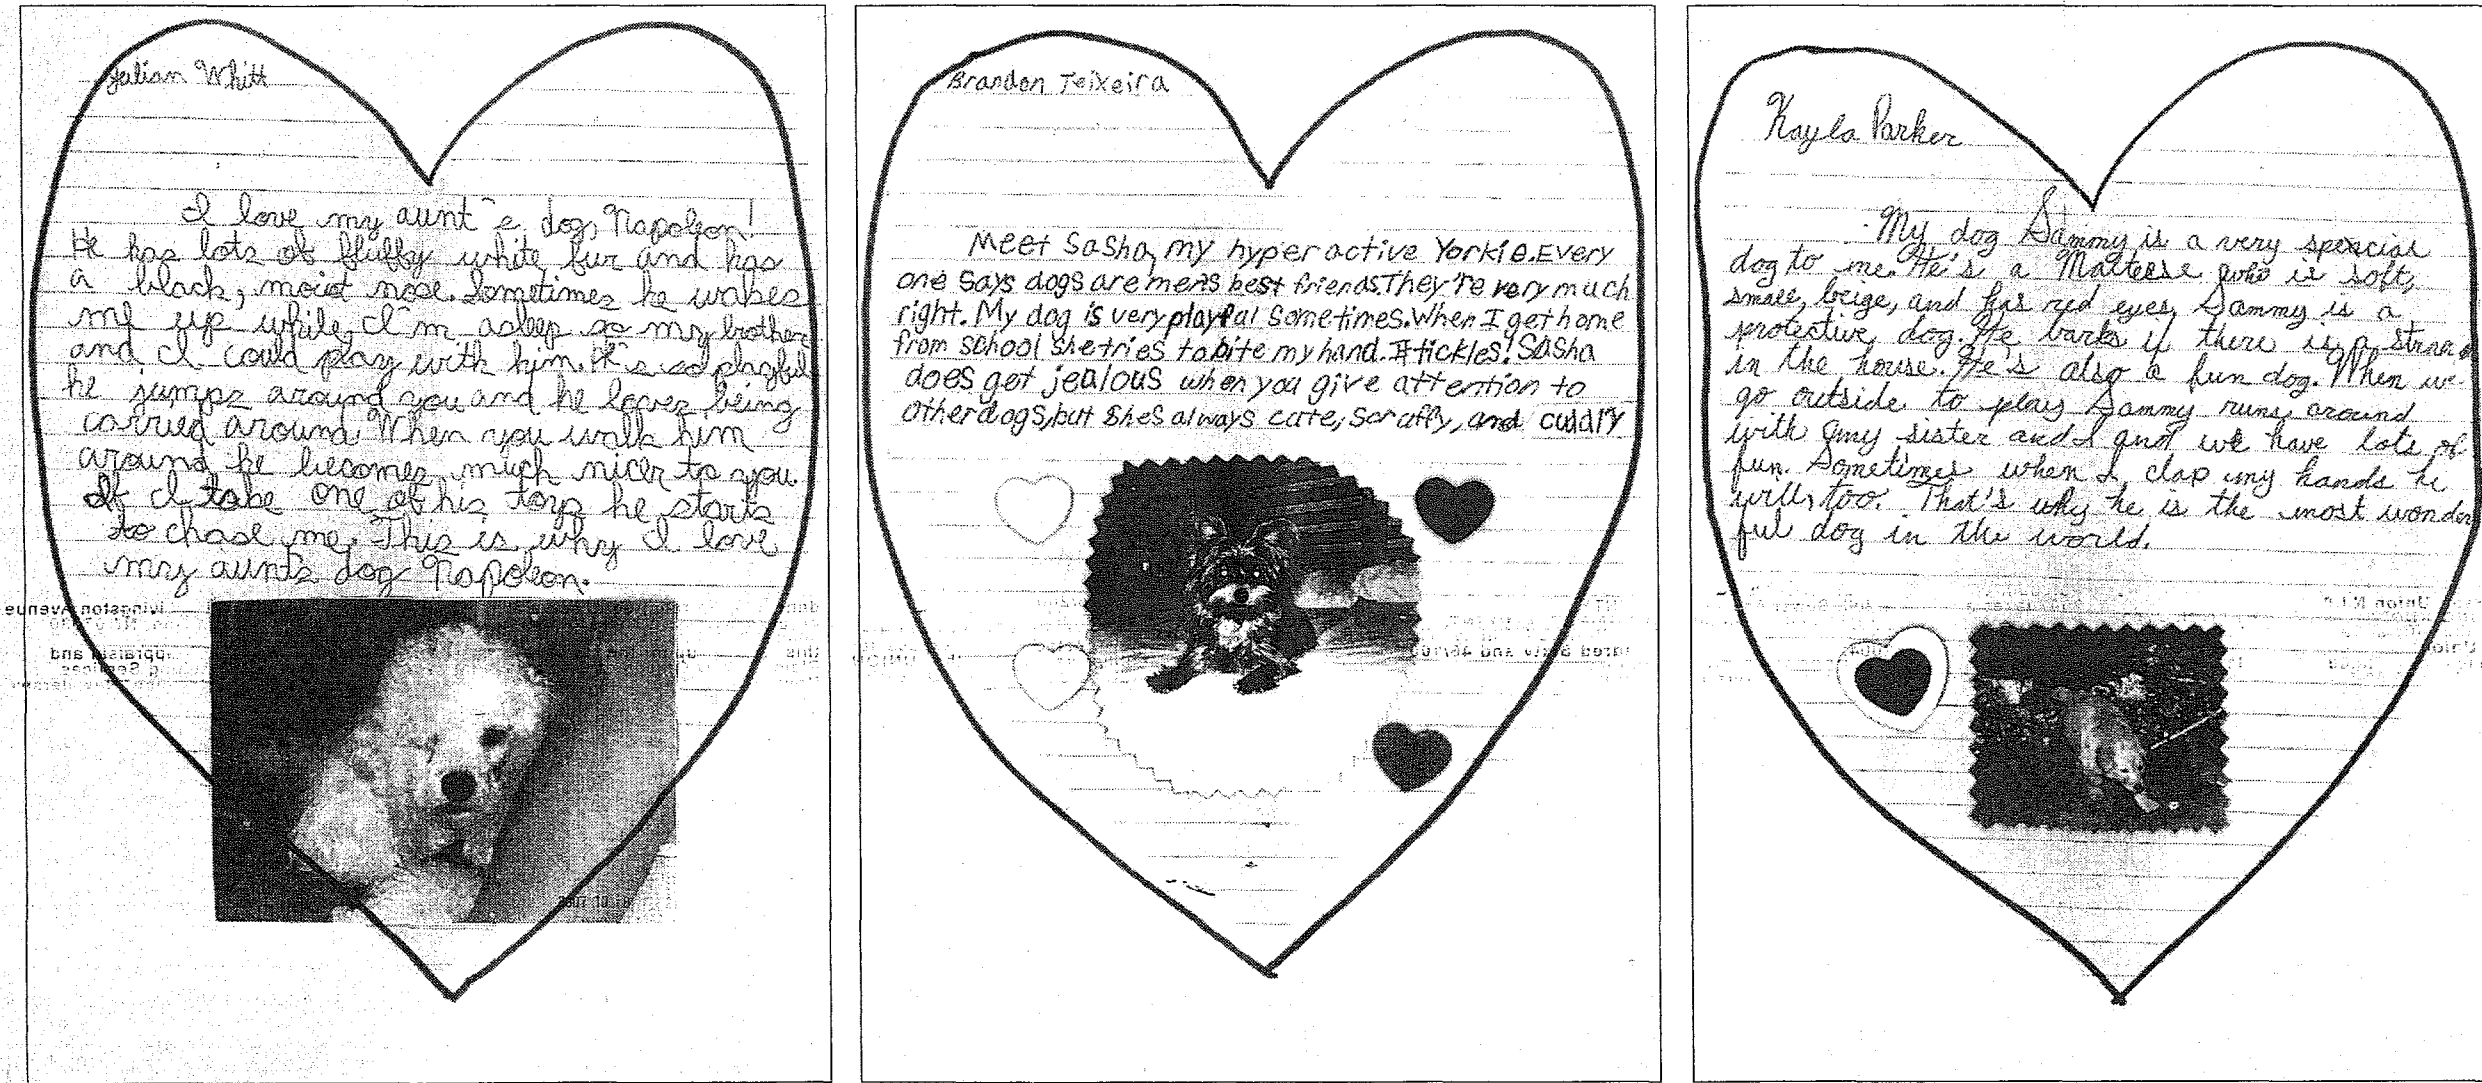 Julian Whitt
I love my aunt's dog, Napoleon!
He has lots of fluffy white fur and has
a black, moist nose. Sometimes he wakes
me up while I'm asleep so my brother
and I could play with him. It's so playful
he jumps around you and he loves being
carried around. When you walk him
around he becomes much nicer to you.
If I take one of his toys he starts
to chase me. This is why I love
my aunt's dog Napoleon.
Brandon Teixeira
Meet Sasha, my hyperactive Yorkie. Every
one says dogs are mens best friends. They're very much
right. My dog is very playful sometimes. When I get home
from school she tries to bite my hand. It tickles! Sasha
does get jealous when you give attention to
other dogs, but shes always cute, scruffy, and cuddly
Kayla Parker
My dog Sammy is a very spencial
dog to me. He's a Malteese who is soft,
small, beige, and has red eyes. Sammy is a
protective dog. He barks if there is a
in the house. He's also a fun dog. When we
go outside to play Sammy runs around
with my sister and I and we have lots of
fun. Sometimes when I clap my hands he
will, too. That's why he is the most wonder
ful dog in the world.